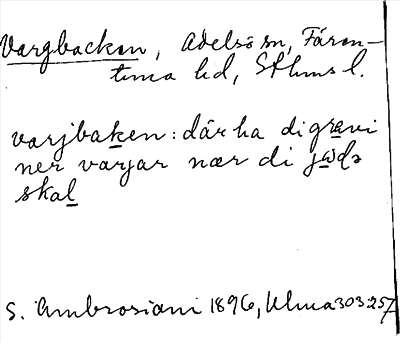 Vargbacken, Adelsö sn, Fären-
tuna hd, Sthms l.
varjbaken: där ha di gravi
ner varjar nær di
skal
S. Ambrosiani 1896, Ulma 303:257